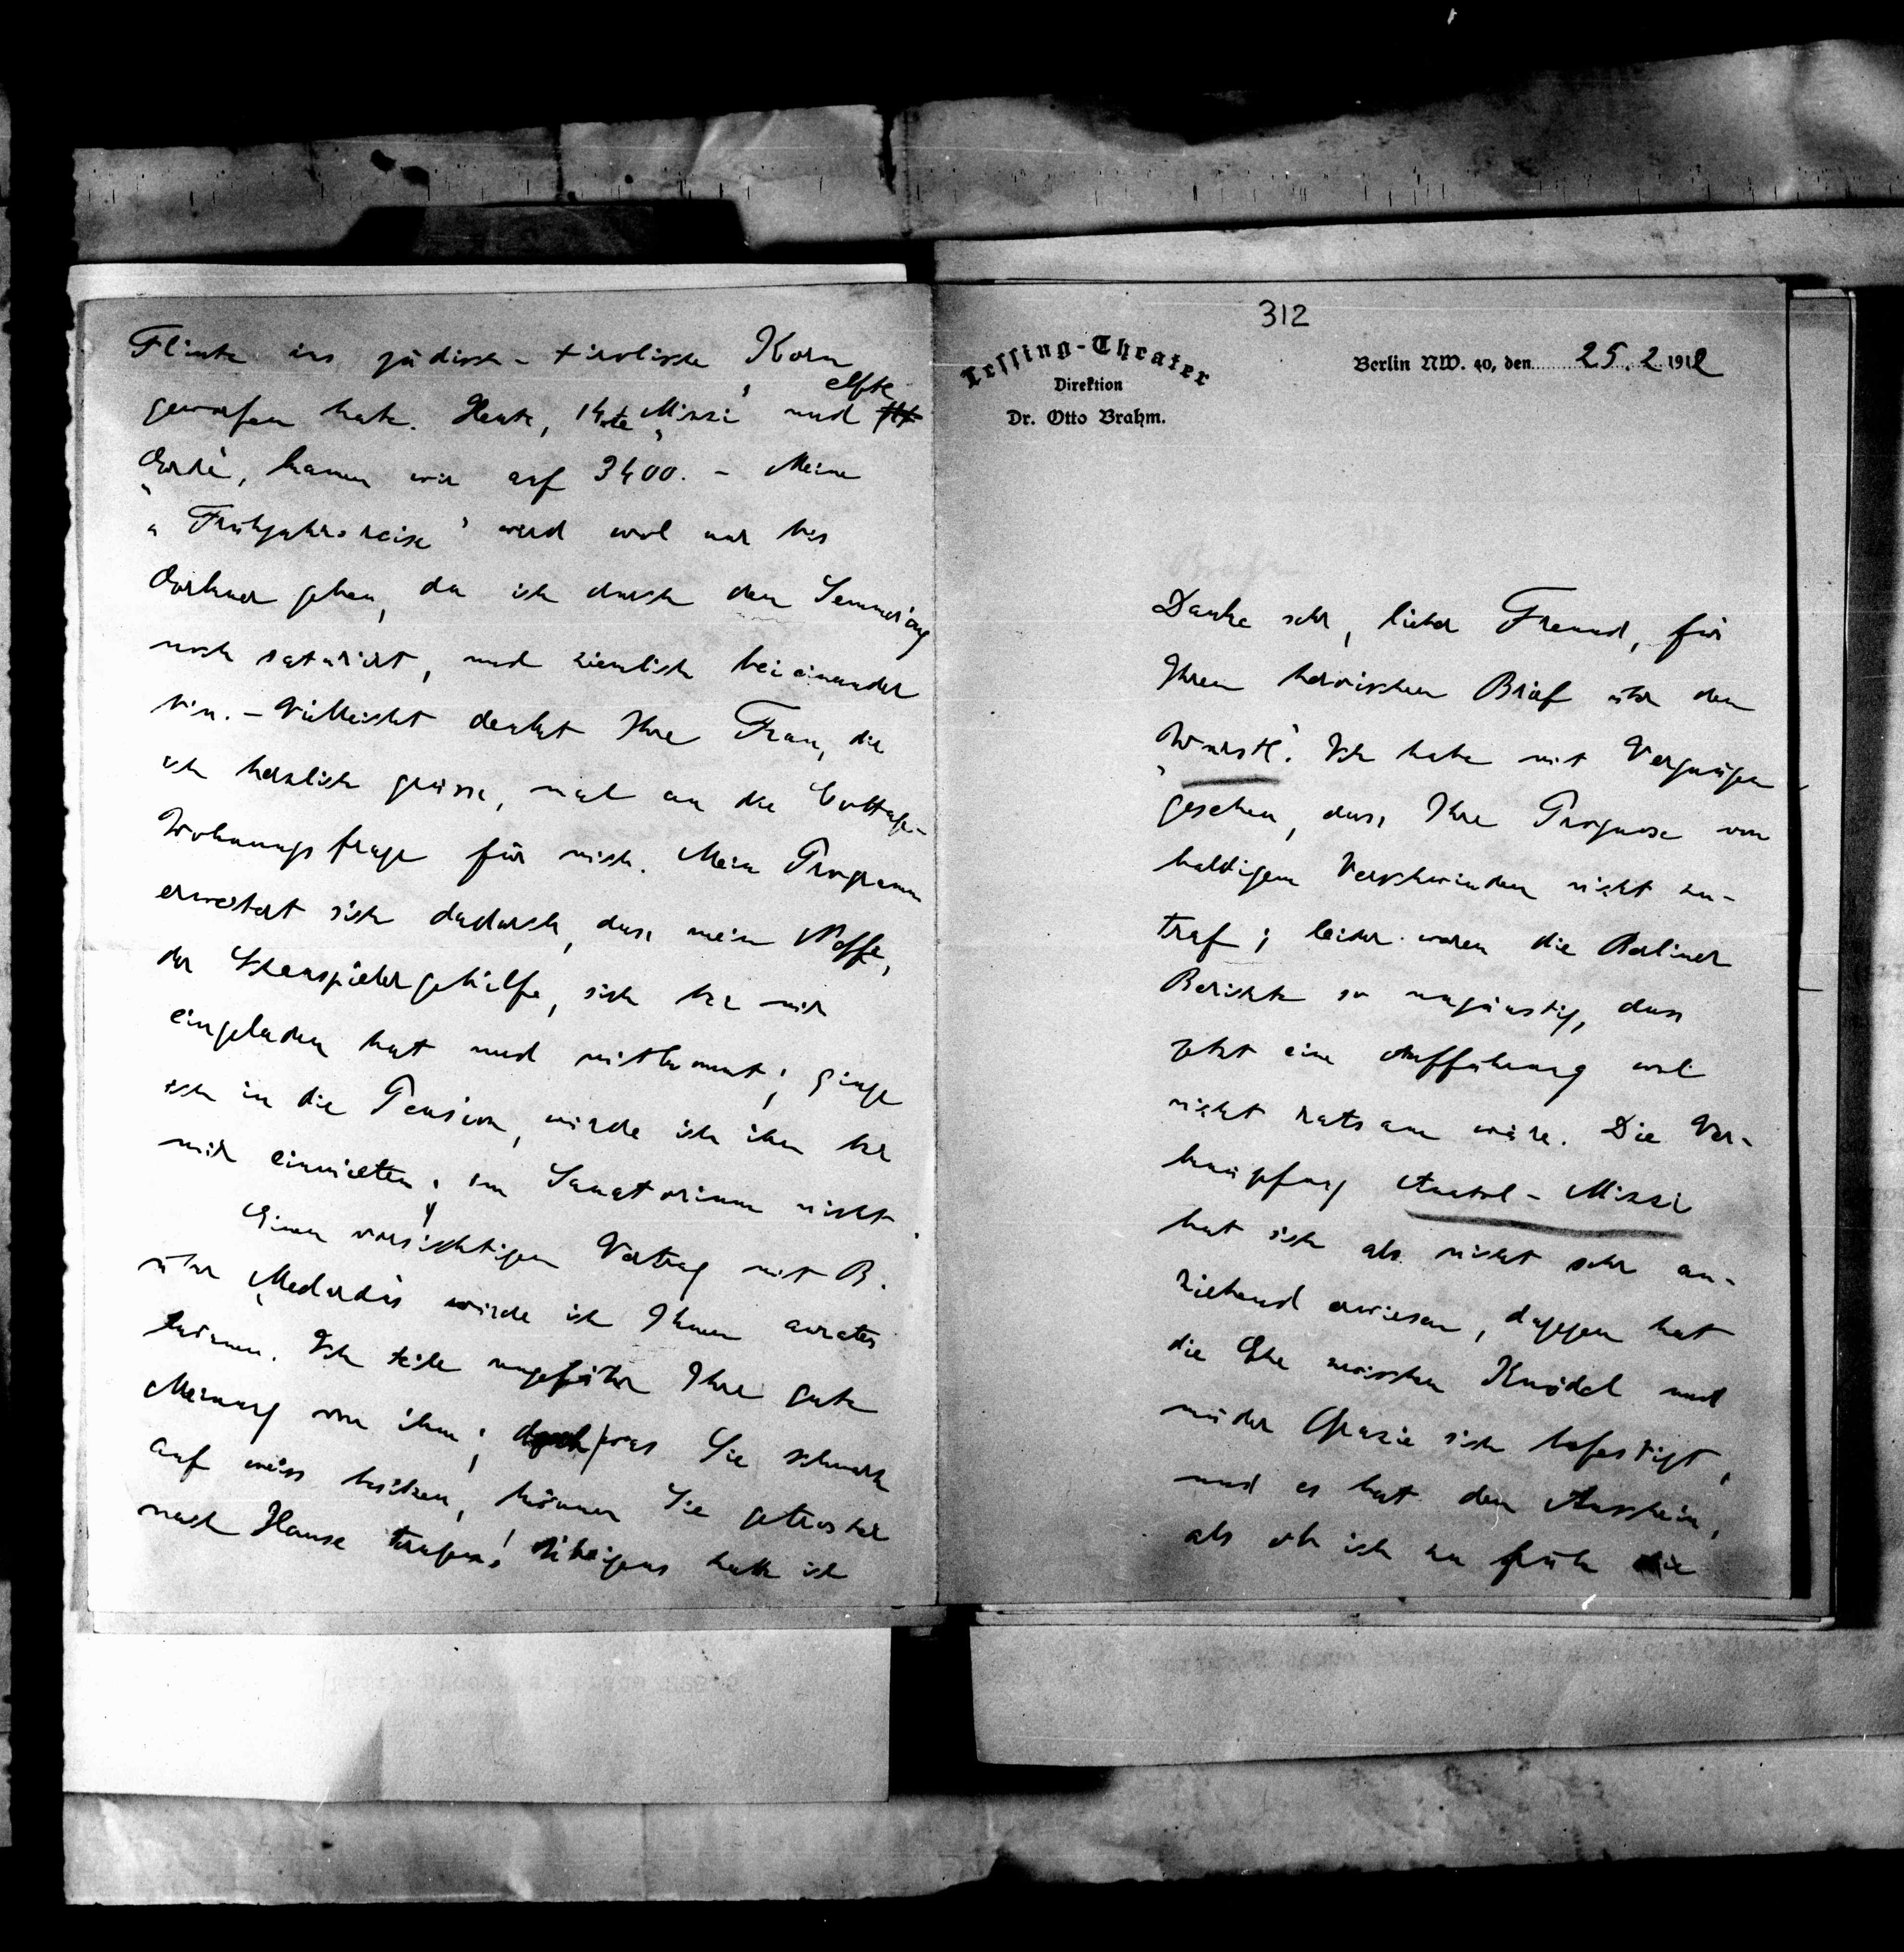 312
Lessing-Theater
Direktion
Dr. Otto Brahm.
Berlin NW. 40, den 25. 2. 1912
Danke sehr, lieber Freund, für
Ihren heroischen Brief über den
„Wurstl“. Ich habe mit Vergnügen
gesehen, dass Ihre Prognose von
baldigem Verschwinden nicht zu-
traf; leider waren die Berliner
Berichte so ungünstig, dass
jetzt eine Aufführung wol
nicht ratsam wäre. Die Ver-
knüpfung Anatol - Mizzi
hat sich als nicht sehr an-
ziehend erwiesen, dagegen hat
die Ehe zwischen Knödel und
müder Grazie sich befestigt,
und es hat den Anschein,
als ob ich zu früh die
Flinte ins jüdisch-tirolische Korn
geworfen habe. Heute, 14te „Mizzi“ und elfte
„Erde“, kamen wir auf 3400. - Meine
„Frühjahrsreise“ wird wol nur bis
gehen, da ich durch den Semmering
noch saturirt, und ziemlich beieinander
bin. - Vielleicht denkt Ihre Frau, die
ich herzlich grüsse, mal an die Cottage-
Wohnungsfrage für mich. Mein Programm
erweitert sich dadurch, dass mein Neffe,
der Schauspielergehilfe, sich bei mir
eingeladen hat und mitkommt; ginge
ich in die Pension, würde ich ihn bei
mir einmieten; im Sanatorium nicht.
Einen vorsichtigen Vertrag mit B.
über „Medardus“ würde ich Ihnen anraten
können. Ich teile ungefähr Ihre gute
Meinung von ihm; doch was Sie schwarz
auf weiss besitzen, können Sie getroster
nach Hause tragen! Übrigens hatte ich